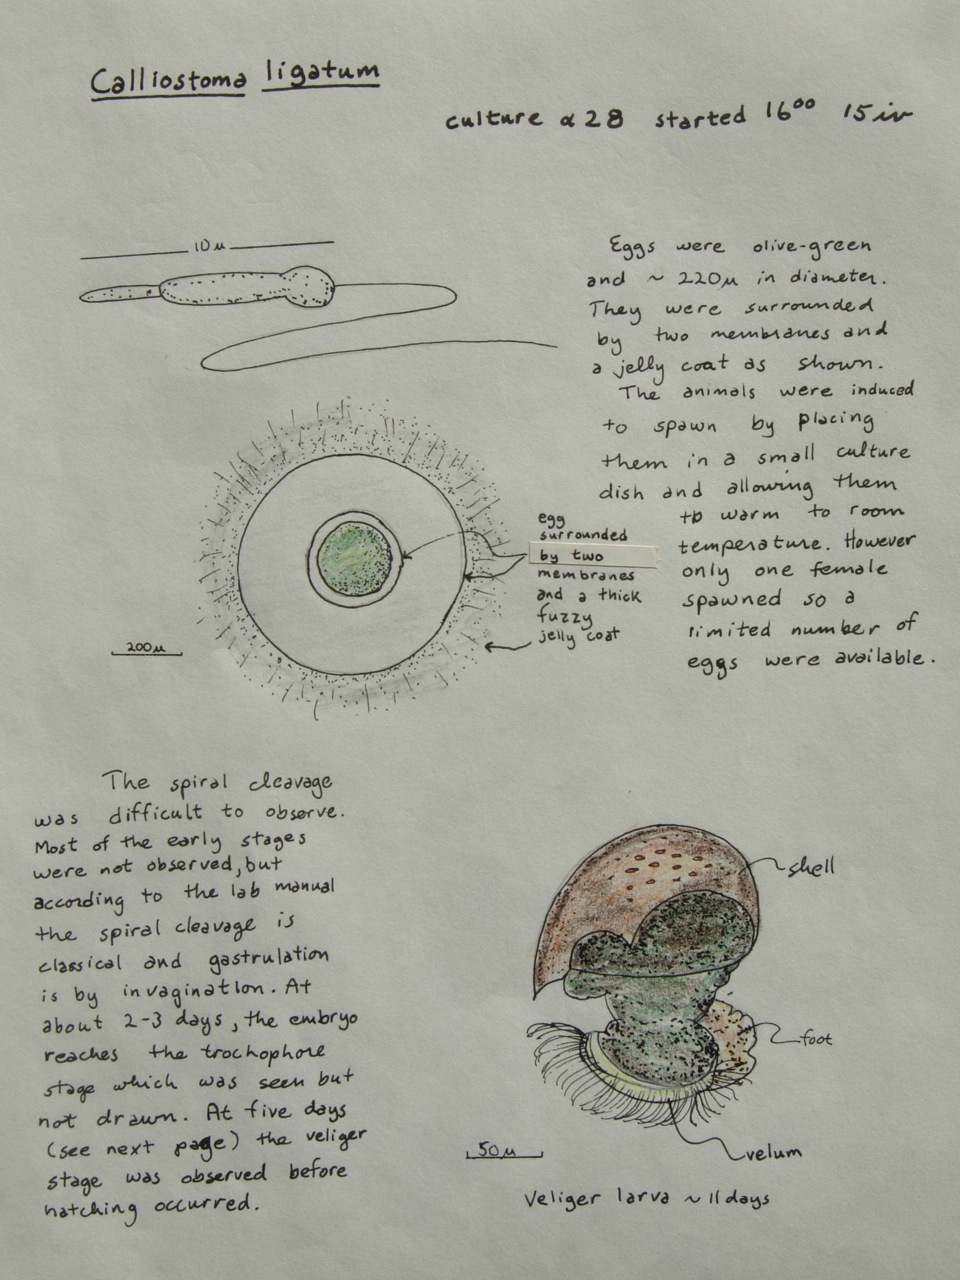 Calliostoma ligatum
culture α 28 started 16⁰⁰ 15 iv
10 µ
Eggs were olive-green
and ~ 220µ in diameter.
They were surrounded
by two membranes and
a jelly coat as shown.
The animals were induced
to spawn by placing
them in a small culture
dish and allowing them
to warm to room
temperature. However
only one female
spawned so a
limited number of
eggs were available.
egg
surrounded
by two
membranes
and a thick
fuzzy
jelly coat
200µ
The spiral cleavage
was difficult to observe.
Most of the early stages
were not observed, but
according to the lab manual
the spiral cleavage is
classical and gastrulation
is by invagination. At
about 2-3 days, the embryo
reaches the trochophore
stage which was seen but
not drawn. At five days
(see next page) the veliger
stage was observed before
hatching occurred.
shell
foot
velum
50µ
Veliger larva ~ 11 days